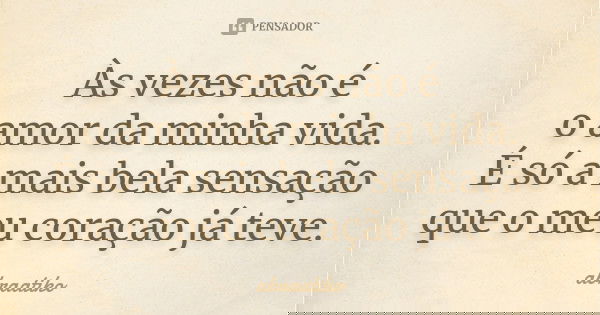 PENSADOR
Às vezes não é
o amor da minha vida.
É só a mais bela sensação
que o meu coração já teve.